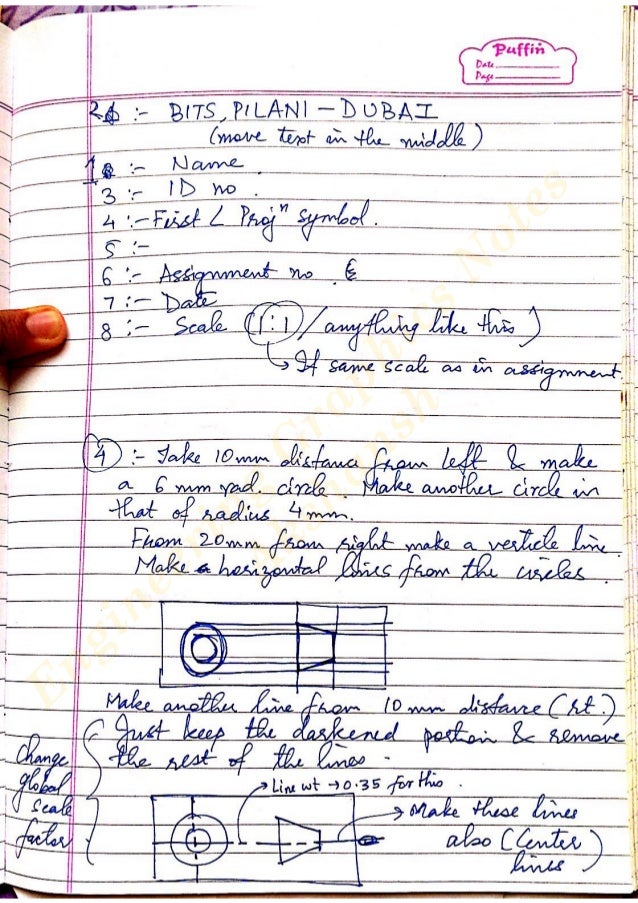 Puffin
Date
Page
2 :- BITS, PILANI - DUBAI
(move text in the middle)
1 :- Name
3 :- ID no.
4 :- First ∠ Projⁿ symbol.
5 :-
6 :- Assignment no.
7 :- Date
8 :- Scale (1:1 / anything like this)
↳ If same scale as in assignment
4 :- Take 10 mm distance from left & make
a 6 mm rad. circle. Make another circle in
that of radius 4 mm.
From 20mm from right make a verticle line.
Make horizontal lines from the circles.
Make another line from 10 mm distance (rt.)
Just keep the darkened portion & remove
the rest of the lines.
Change
global
scale
factor
Line wt → 0.35 for this.
Make these lines
also (Center
lines)
Engineering Graphics Notes